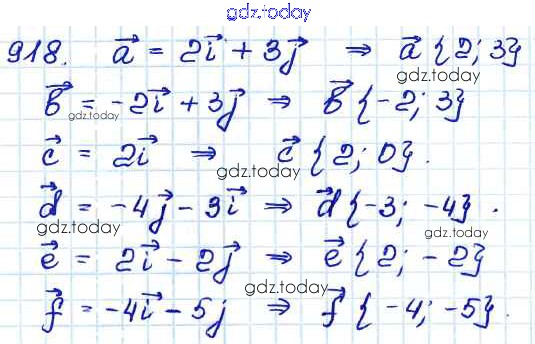 gdz.today
918. a⃗ = 2i⃗ + 3j⃗ ⇒ a⃗ {2; 3}
gdz.today
b⃗ = -2i⃗ + 3j⃗ ⇒ b⃗ {-2; 3}
gdz.today
c⃗ = 2i⃗ ⇒ c⃗ {2; 0}.
gdz.today
d⃗ = -4j⃗ - 3i⃗ ⇒ d⃗ {-3; -4}.
gdz.today gdz.today
e⃗ = 2i⃗ - 2j⃗ ⇒ e⃗ {2; -2}
gdz.today
f⃗ = -4i⃗ - 5j ⇒ f⃗ {-4; -5}.